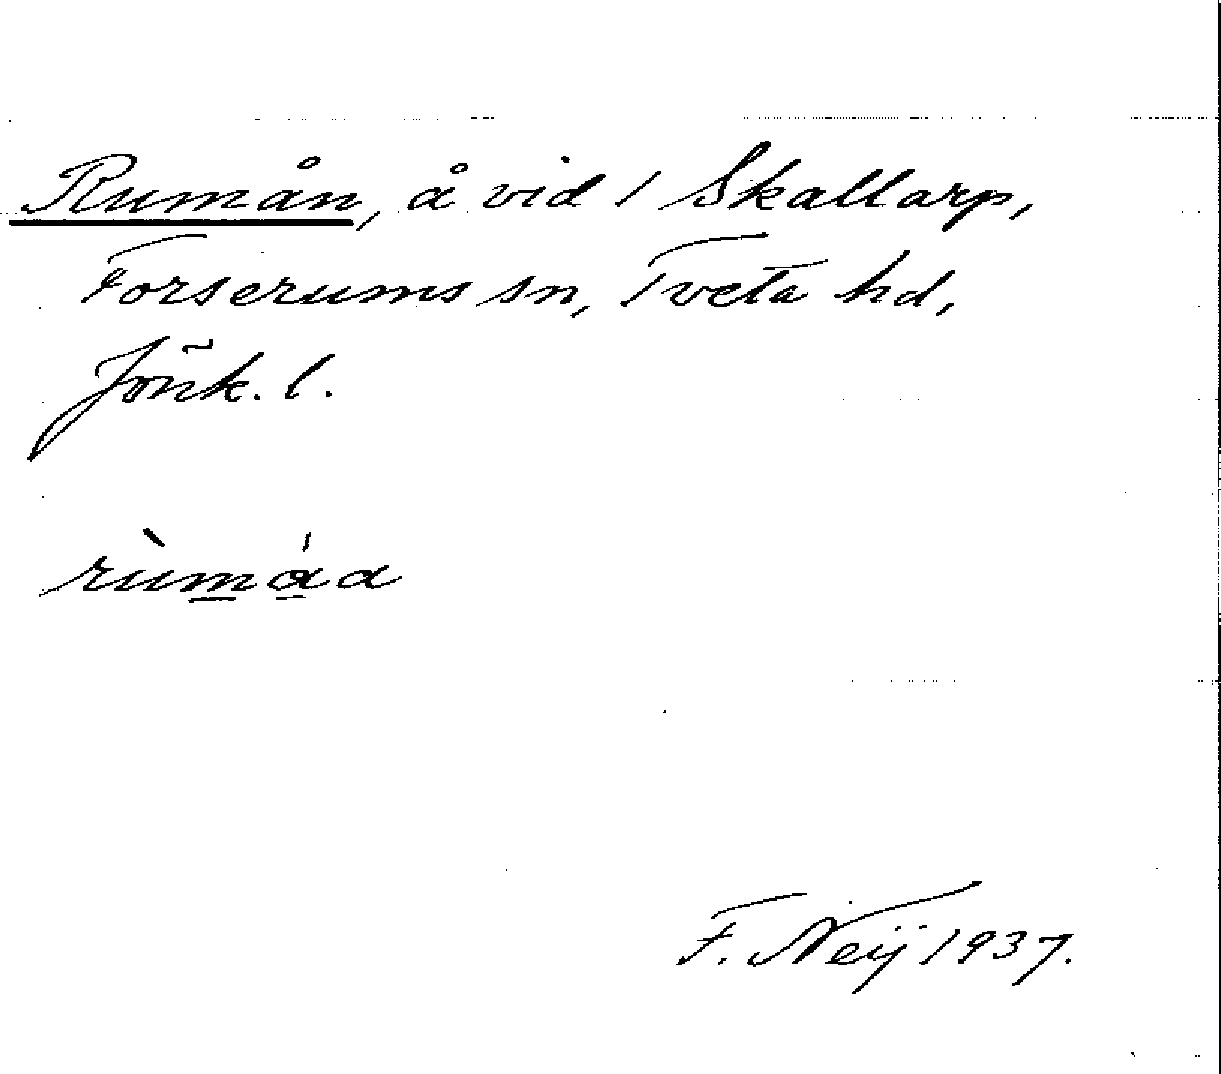 Rumån, å vid / Skallarp,
Forserums sn, Tveta hd,
Jönk. l.
rùmáa
F. Neij 1937.